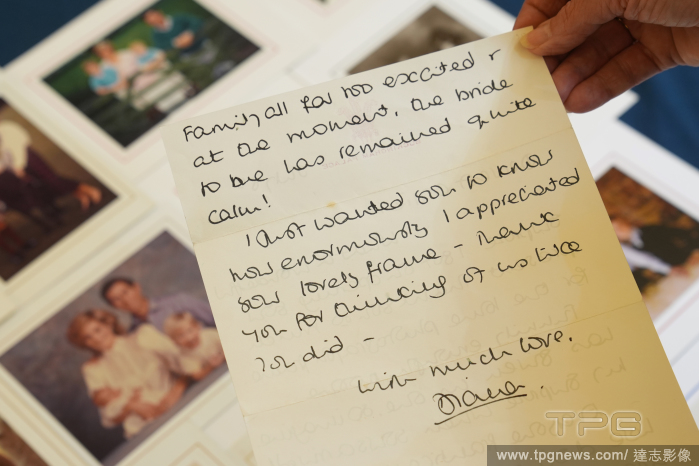 Family all far too excited &
at the moment, the bride
to be has remained quite
calm!
I just wanted you to know
how enormously I appreciated
your lovely frame - Thank
you for thinking of us like
you did -
With much love,
Diana.
TPG
www.tpgnews.com/ 達志影像